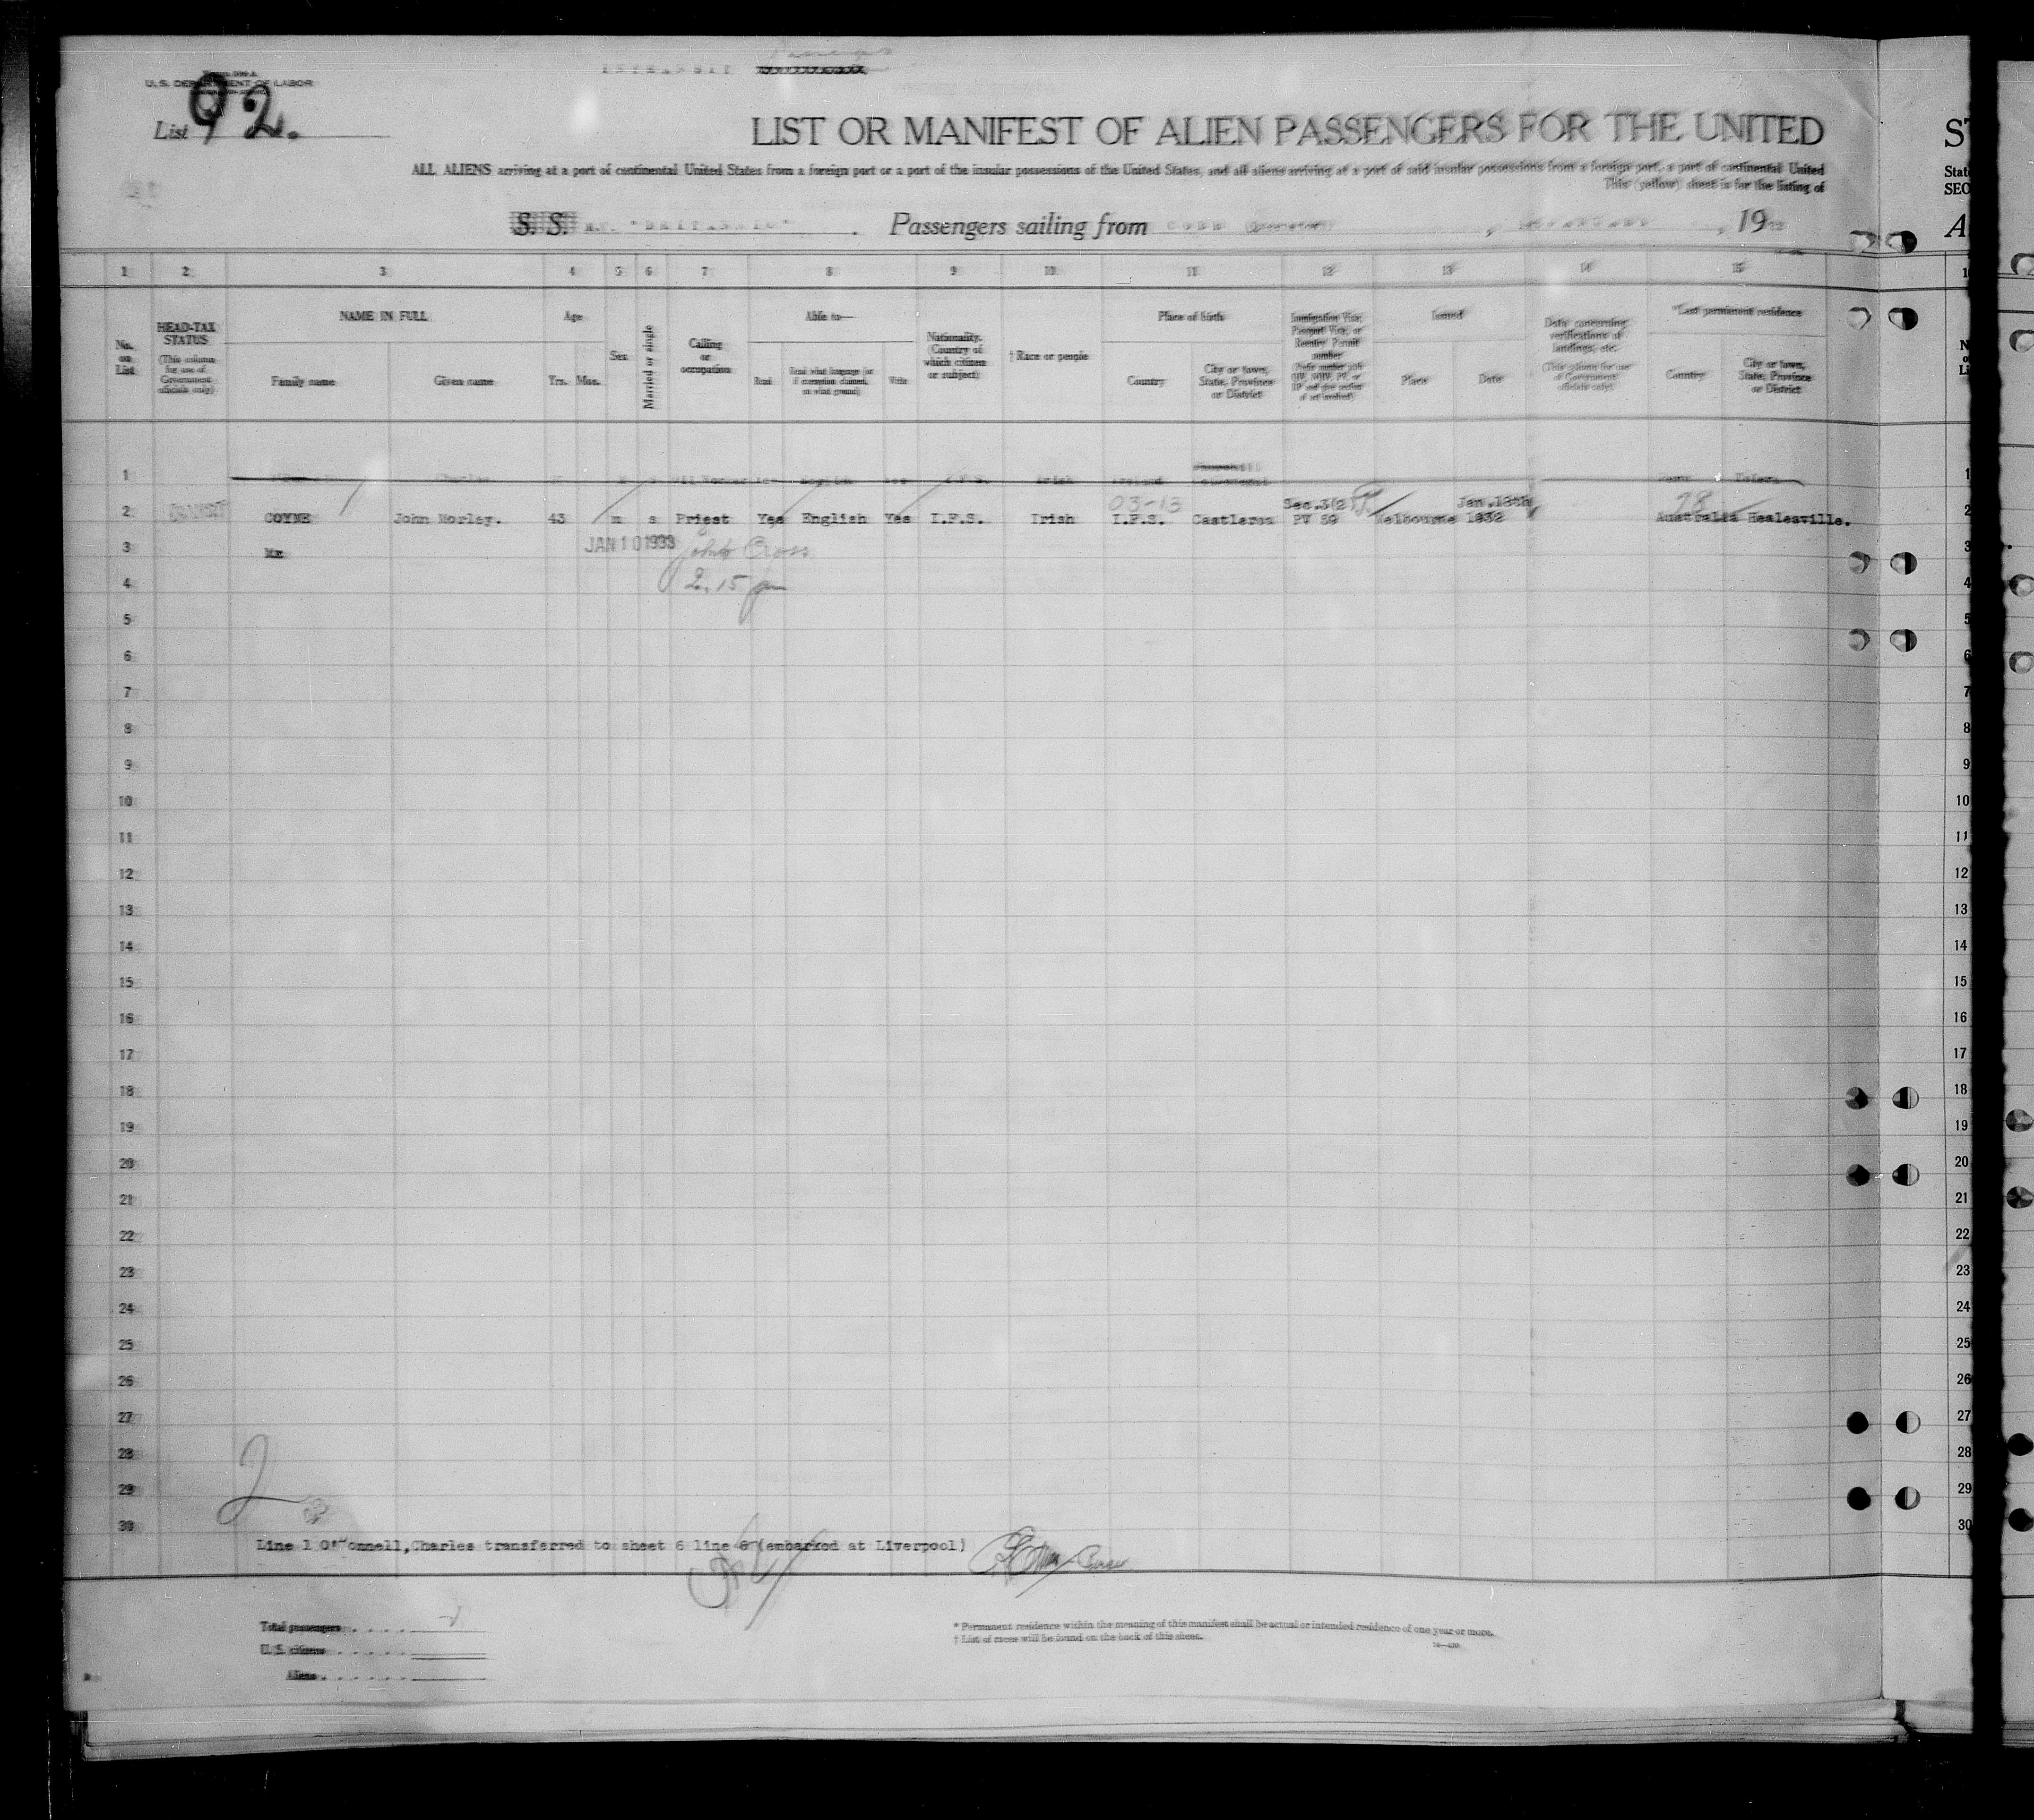 INTRANSIT
U. S. DEPARTMENT OF LABOR
List 92.
LIST OR MANIFEST OF ALIEN PASSENGERS FOR THE UNITED
ALL ALIENS arriving at a port of continental United States from a foreign port or a part of the insular possessions of the United States, and all aliens arriving at a port of said insular possessions from a foreign port, a part of continental United
This (yellow) sheet is for the listing of
S. S. M.V. "BRITANNIC". Passengers sailing from COBH , , 19
1 2 3 4 5 6 7 8 9 10 11 12 13 14 15
No. on List
HEAD-TAX STATUS
(This column for use of Government officials only)
NAME IN FULL
Family name Given name
Age
Yrs. Mos.
Sex
Married or single
Calling or occupation
Able to—
Read Read what language (or if exemption claimed, on what ground) Write
Nationality. (Country of which citizen or subject)
† Race or people
Place of birth
Country City or town, State, Province or District
Immigration Visa, Passport Visa, or Reentry Permit number
Issued
Place Date
Data concerning verifications of landings, etc.
(This column for use of Government officials only)
*Last permanent residence
Country City or town, State, Province or District
1 Charles Irish Ireland
03-13 Sec.3(2) Jan.18th
2 COYNE John Morley. 43 m s Priest Yes English Yes I.F.S. Irish I.F.S. Castlerea PV 59 Melbourne 1932 Australia Healesville. 2
3 JAN 10 1933 Cross 3
4 2.15 pm 4
5 5
6 6
7 7
8 8
9 9
10 10
11 11
12 12
13 13
14 14
15 15
16 16
17 17
18 18
19 19
20 20
21 21
22 22
23 23
24 24
25 25
26 26
27 27
28 28
29 29
30 30
2
Line 1 O'Donnell,Charles transferred to sheet 6 line 6 (embarked at Liverpool)
Total passengers
U. S. citizens
Aliens
* Permanent residence within the meaning of this manifest shall be actual or intended residence of one year or more.
† List of races will be found on the back of this sheet.